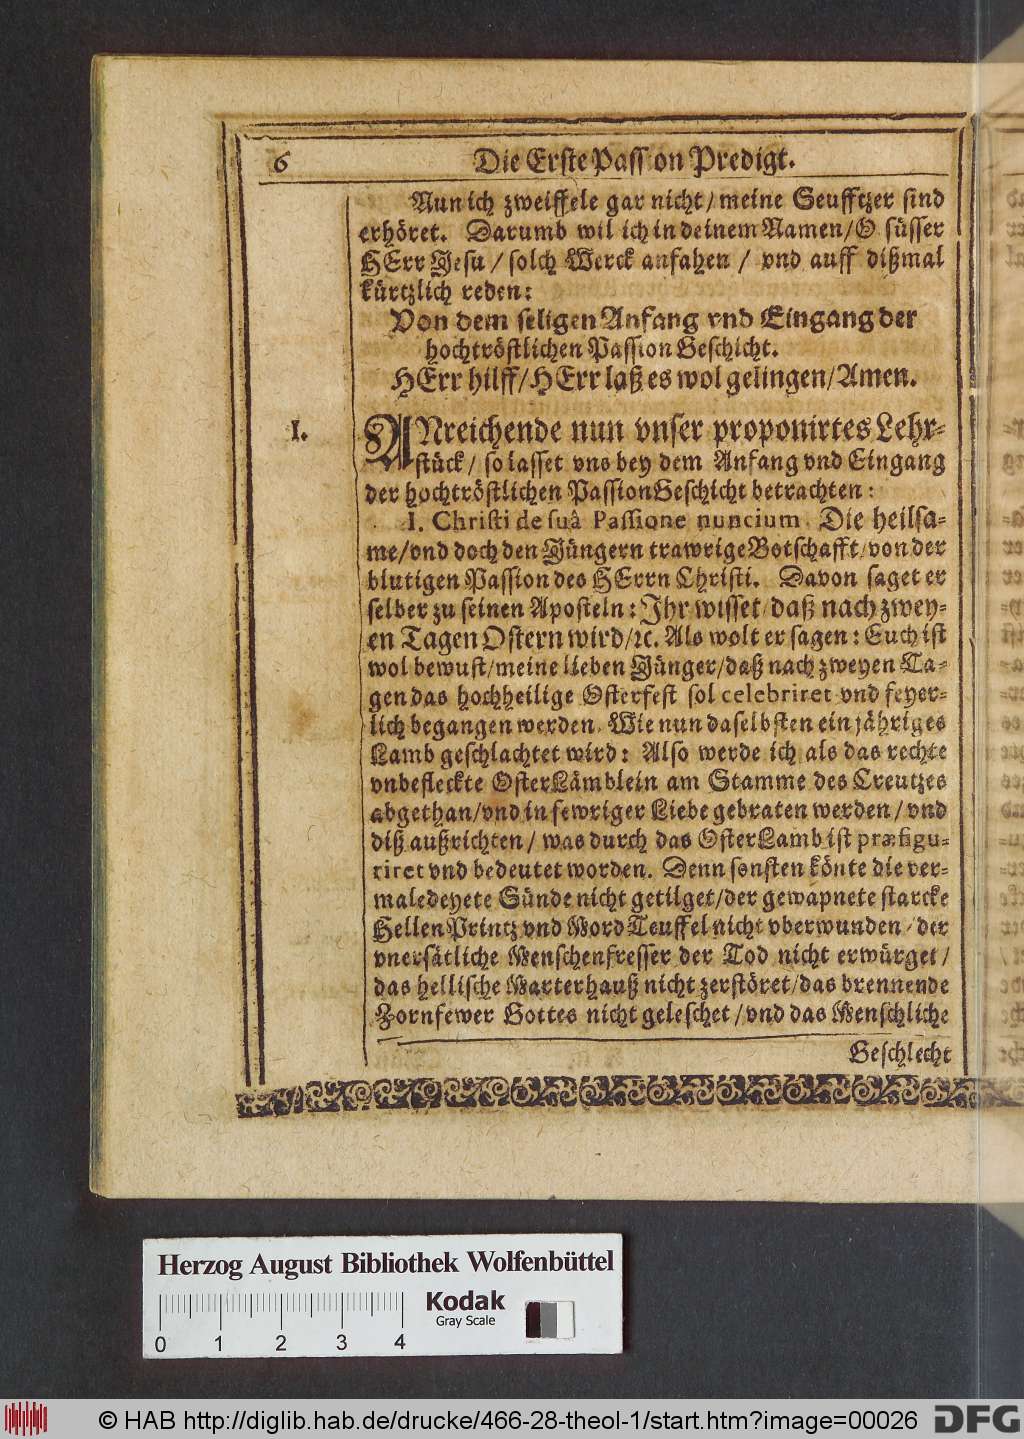 6 Die Erste Passion Predigt.
Nun ich zweiffele gar nicht / meine Seufftzer sind
erhöret. Darumb wil ich in deinem Namen / O süsser
HErr Jesu / solch Werck anfahen / vnd auff dißmal
kürtzlich reden:
Von dem seligen Anfang vnd Eingang der
hochtröstlichen Passion Geschicht.
HErr hilff / HErr laß es wol gelingen / Amen.
I. ANreichende nun vnser proponirtes Lehr-
stück / so lasset vns bey dem Anfang vnd Eingang
der hochtröstlichen Passion Geschicht betrachten:
I. Christi de suâ Passione nuncium. Die heilsa-
me / vnd doch den Jüngern trawrige Botschafft / von der
blutigen Passion des HErrn Christi. Davon saget er
selber zu seinen Aposteln: Ihr wisset / daß nach zwey-
en Tagen Ostern wird / ꝛc. Als wolt er sagen: Euch ist
wol bewust / meine lieben Jünger / daß nach zweyen Ta-
gen das hochheilige Osterfest sol celebriret vnd feyer-
lich begangen werden. Wie nun daselbsten ein jähriges
Lamb geschlachtet wird: Also werde ich als das rechte
vnbefleckte OsterLämblein am Stamme des Creutzes
abgethan / vnd in fewriger Liebe gebraten werden / vnd
diß außrichten / was durch das OsterLamb ist præfigu-
riret vnd bedeutet worden. Denn sonsten könte die ver-
maledeyete Sünde nicht getilget / der gewapnete starcke
HellenPrintz vnd MordTeuffel nicht vberwunden / der
vnersätliche Menschenfresser der Tod nicht erwürget /
das hellische Marterhauß nicht zerstöret / das brennende
Zornfewer Gottes nicht geleschet / vnd das Menschliche
Geschlecht
Herzog August Bibliothek Wolfenbüttel
Kodak
Gray Scale
0 1 2 3 4
© HAB http://diglib.hab.de/drucke/466-28-theol-1/start.htm?image=00026
DFG